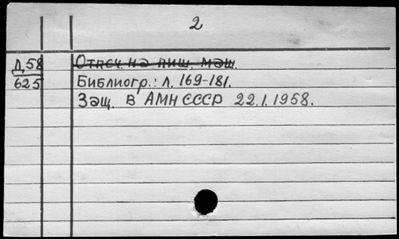 2
Л,58 Отпеч. на пиш. маш.
625 Библиогр.: л. 169-181.
Защ. В АМН СССР 22.1.1958.